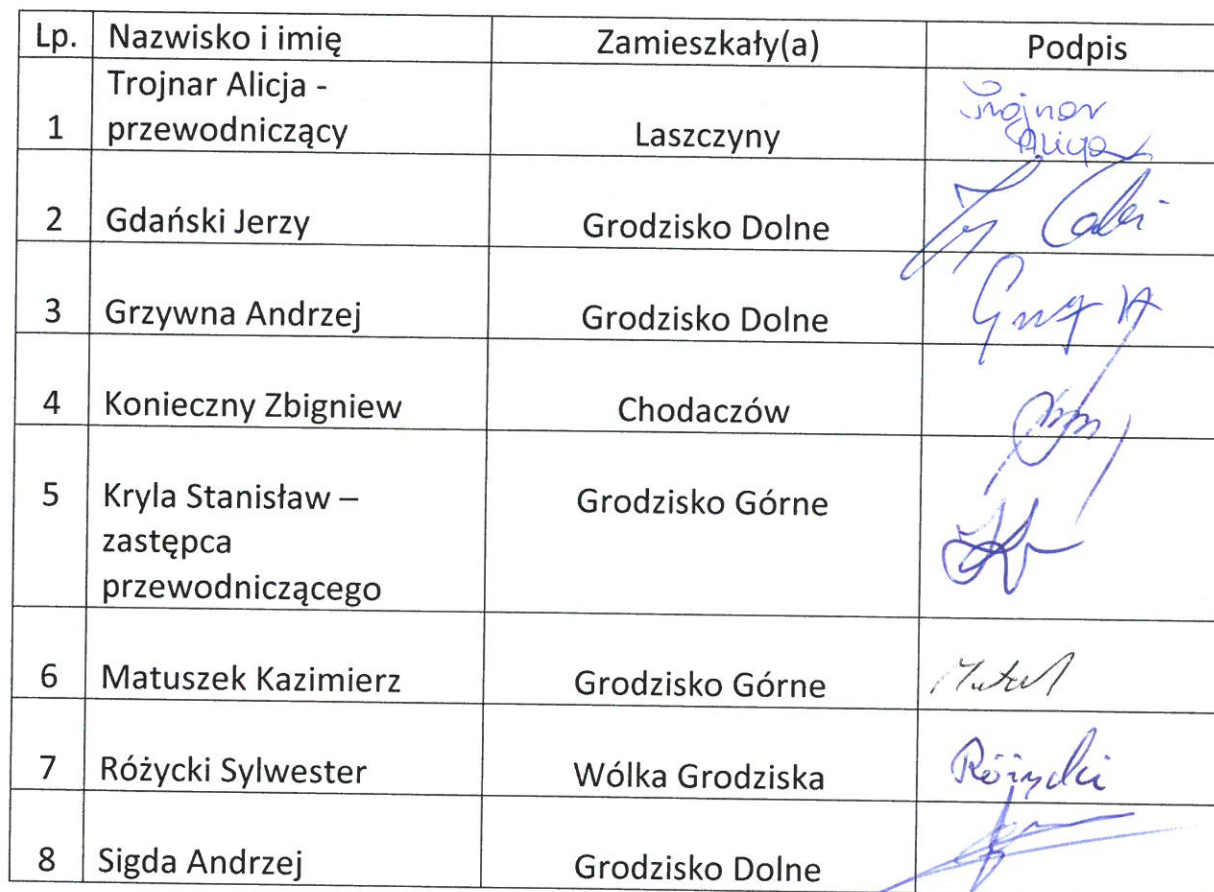 Lp. Nazwisko i imię Zamieszkały(a) Podpis
Trojnar Alicja -
1 przewodniczący Laszczyny Trojnar
Alicja
2 Gdański Jerzy Grodzisko Dolne
3 Grzywna Andrzej Grodzisko Dolne
4 Konieczny Zbigniew Chodaczów
5 Kryla Stanisław – Grodzisko Górne
zastępca
przewodniczącego
6 Matuszek Kazimierz Grodzisko Górne
7 Różycki Sylwester Wólka Grodziska Różycki
8 Sigda Andrzej Grodzisko Dolne